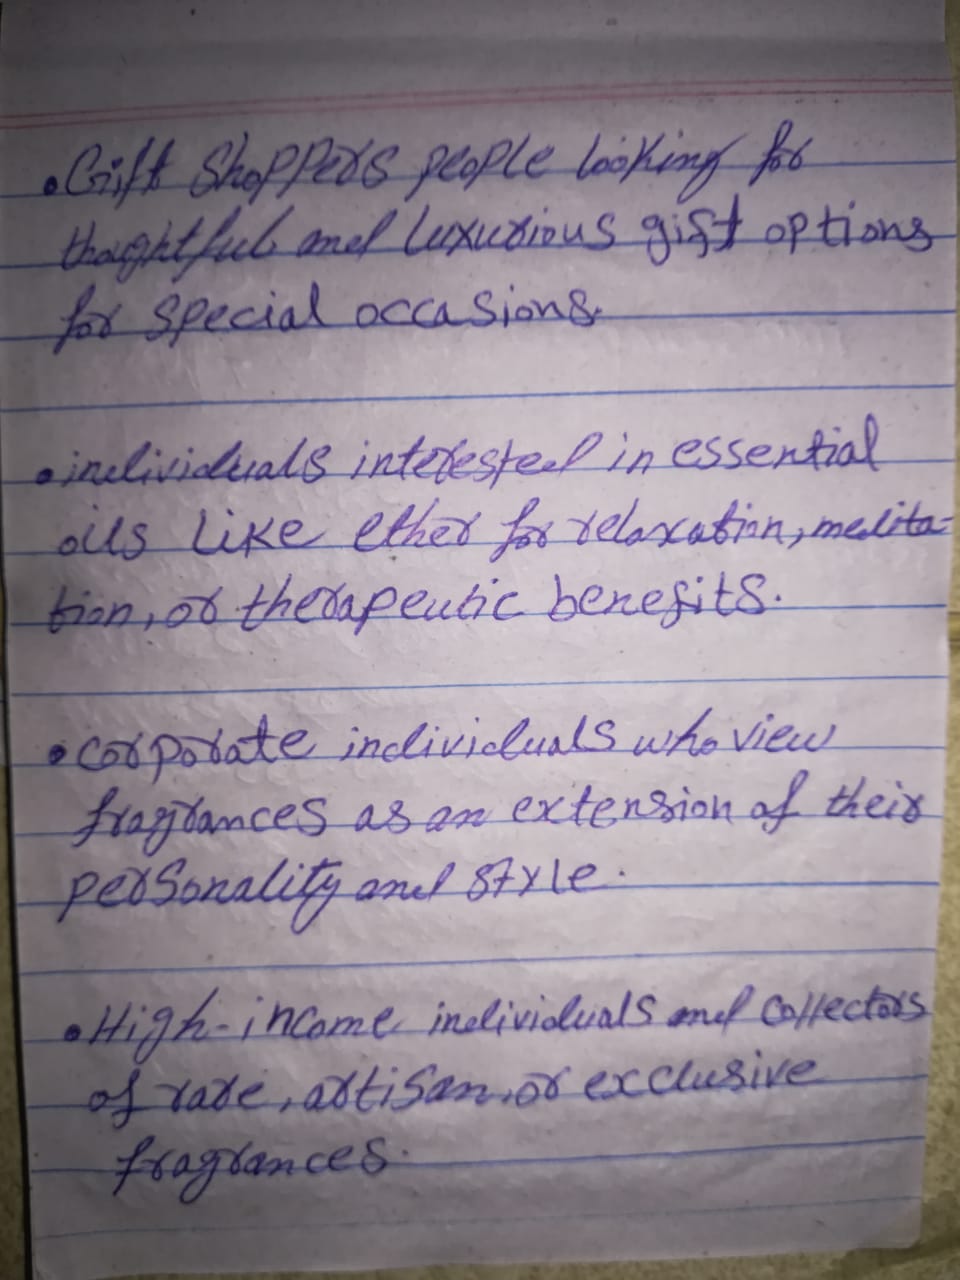 • Gift Shoppers people looking for
thoughtful and luxurious gift options
for special occasions.
• individuals interested in essential
oils like ether for relaxation, medita-
tion, or therapeutic benefits.
• corporate individuals who view
fragrances as an extension of their
personality and style.
• High-income individuals and collectors
of rare, artisan, or exclusive
fragrances.